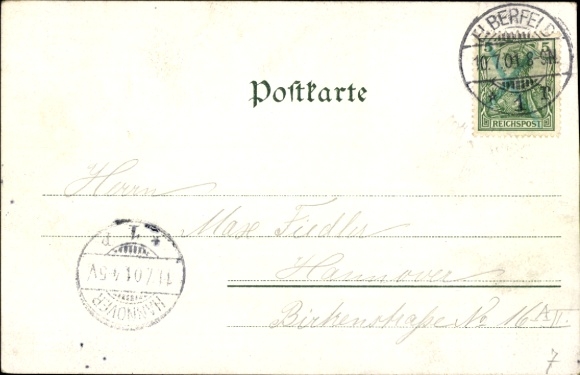 ELBERFELD
5 5
10.7.01.8-9N.
* 1 r
REICHSPOST
Postkarte
Herrn
Max Fiedler
Hannover
Birkenstraße No 16 A II.
* 1 r
11.7.01.4-5V
HANNOVER
7